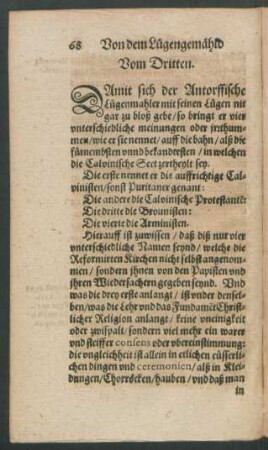 68 Von dem Lügengemähld
Vom Dritten.
DAmit sich der Antorffische
Lügenmahler mit seinen Lügen nit
gar zu bloß gebe/ so bringt er vier
vnterschiedliche meinungen oder jrrthum-
men/ wie er sie nennet/ auff die bahn/ alß die
fürnembsten vnnd bekandtesten/ in welchen
die Calvinische Sect zertheylt sey.
Die erste nennet er die auffrichtige Cal-
vinisten/ sonst Puritaner genant:
Die andere die Calvinische Protestantē:
Die dritte die Brounisten:
Die vierte die Arministen.
Hierauff ist zuwissen/ daß diß nur vier
vnterschiedliche Namen seynd/ welche die
Reformirten Kirchen nicht selbst angenom-
men/ sondern jhnen von den Papisten vnd
jhren Widersachern gegeben seynd. Vnd
was die drey erste anlangt/ ist vnder densel-
ben/ was die Lehr vnd das Fundamēt Christ-
licher Religion anlangt/ keine vneinigkeit
oder zwyspalt/ sondern viel mehr ein warer
vnd steiffer consens oder vbereinstimmung:
die vngleichheit ist allein in etlichen eüsserli-
chen dingen vnd ceremonien/ alß in Klei-
dungen/ Chorröcken/ hauben/ vnd daß man
in